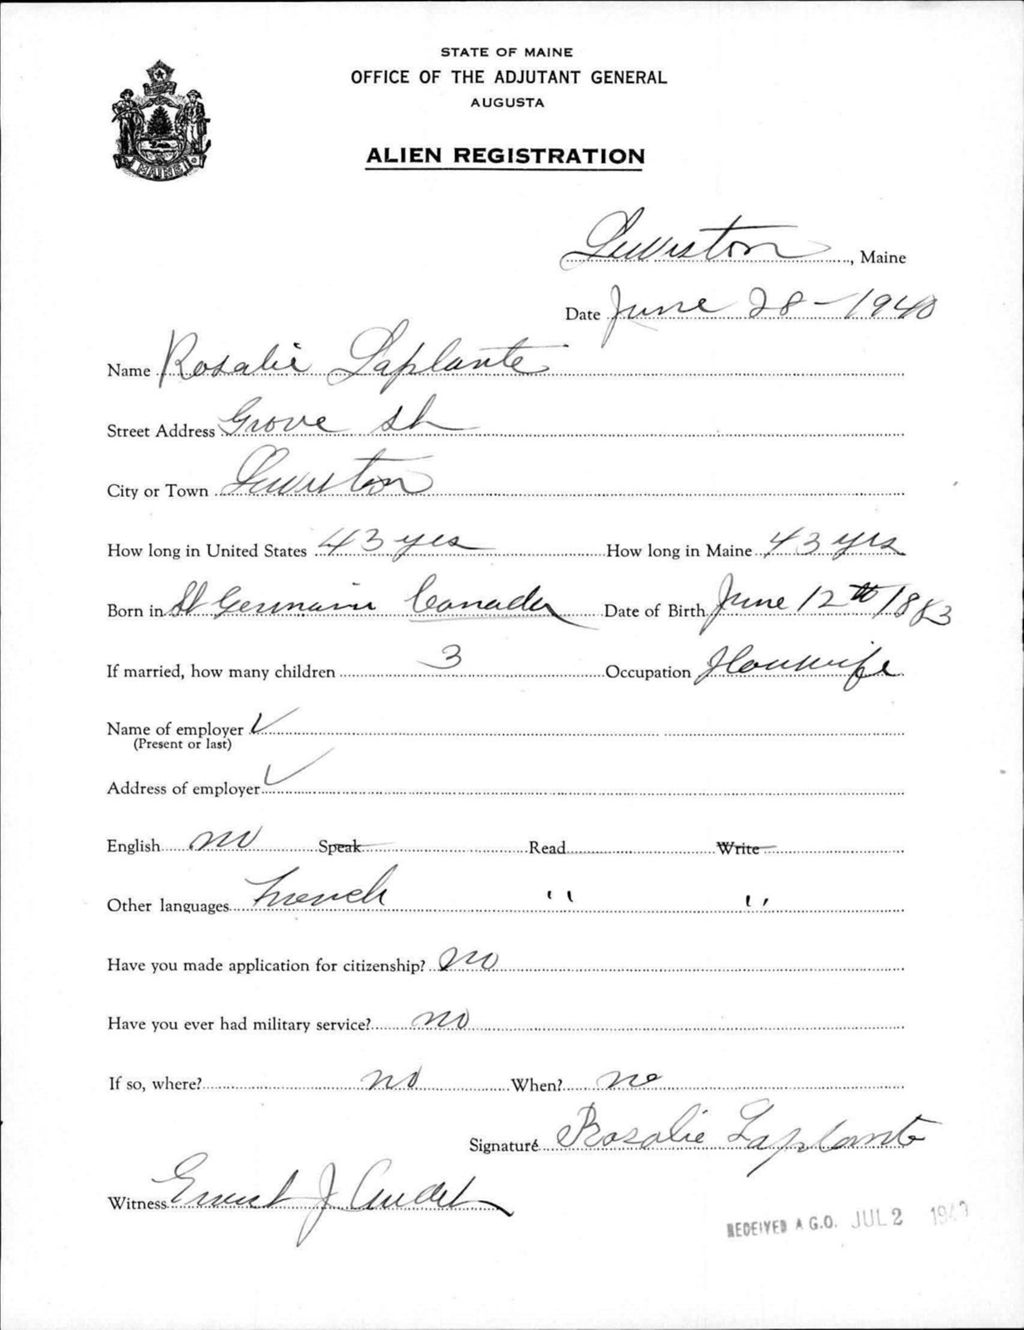 STATE OF MAINE
OFFICE OF THE ADJUTANT GENERAL
AUGUSTA
ALIEN REGISTRATION
MAINE
Lewiston, Maine
Date June 28 - 1940
Name Rosalie Laplante
Street Address Grove St
City or Town Lewiston
How long in United States 43 yrs How long in Maine 43 yrs
Born in St Germain Canada Date of Birth June 12th 1883
If married, how many children 3 Occupation Housewife
Name of employer ✓
(Present or last)
Address of employer ✓
English no Speak Read Write
Other languages French " "
Have you made application for citizenship? no
Have you ever had military service? no
If so, where? no When? no
Signature Rosalie Laplante
Witness Ernest J Audet
RECEIVED A.G.O. JUL 2 1940